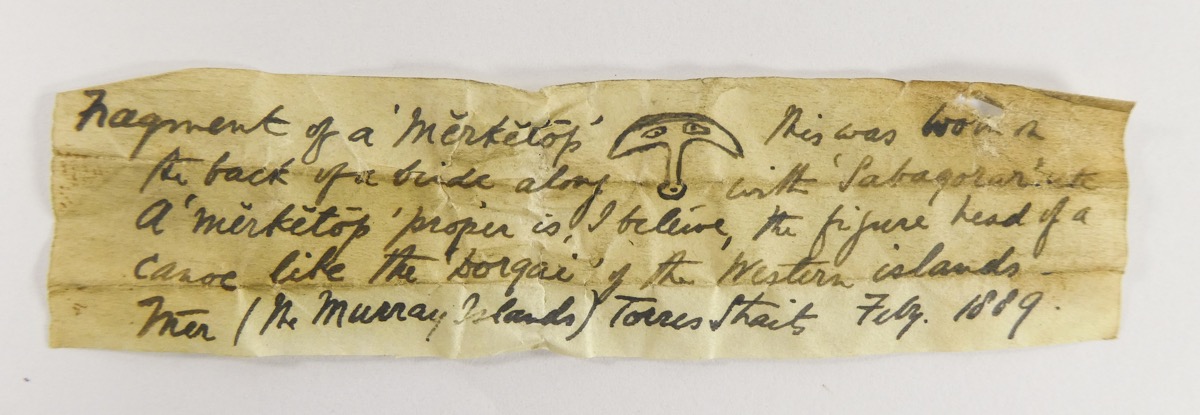 Fragment of a 'Mĕrkĕtōp' This was worn on
the back of a bride along with 'Sabagorar' etc
A 'mĕrkĕtōp' proper is, I beleive, the figure head of a
canoe like the 'Dorgai' of the Western islands -
Mēr (The Murray Islands) Torres Straits Feby. 1889.